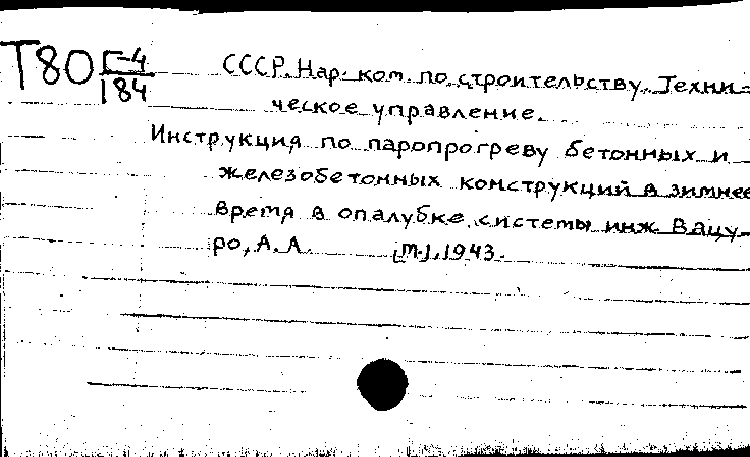 Т80 Г-4/184
СССР. Нар. ком. по строительству. Техни-
ческое управление.
Инструкция по паропрогреву бетонных и
железобетонных конструкций в зимнее
время в опалубке системы инж. Вацу-
ро, А. А. [М.], 1943.